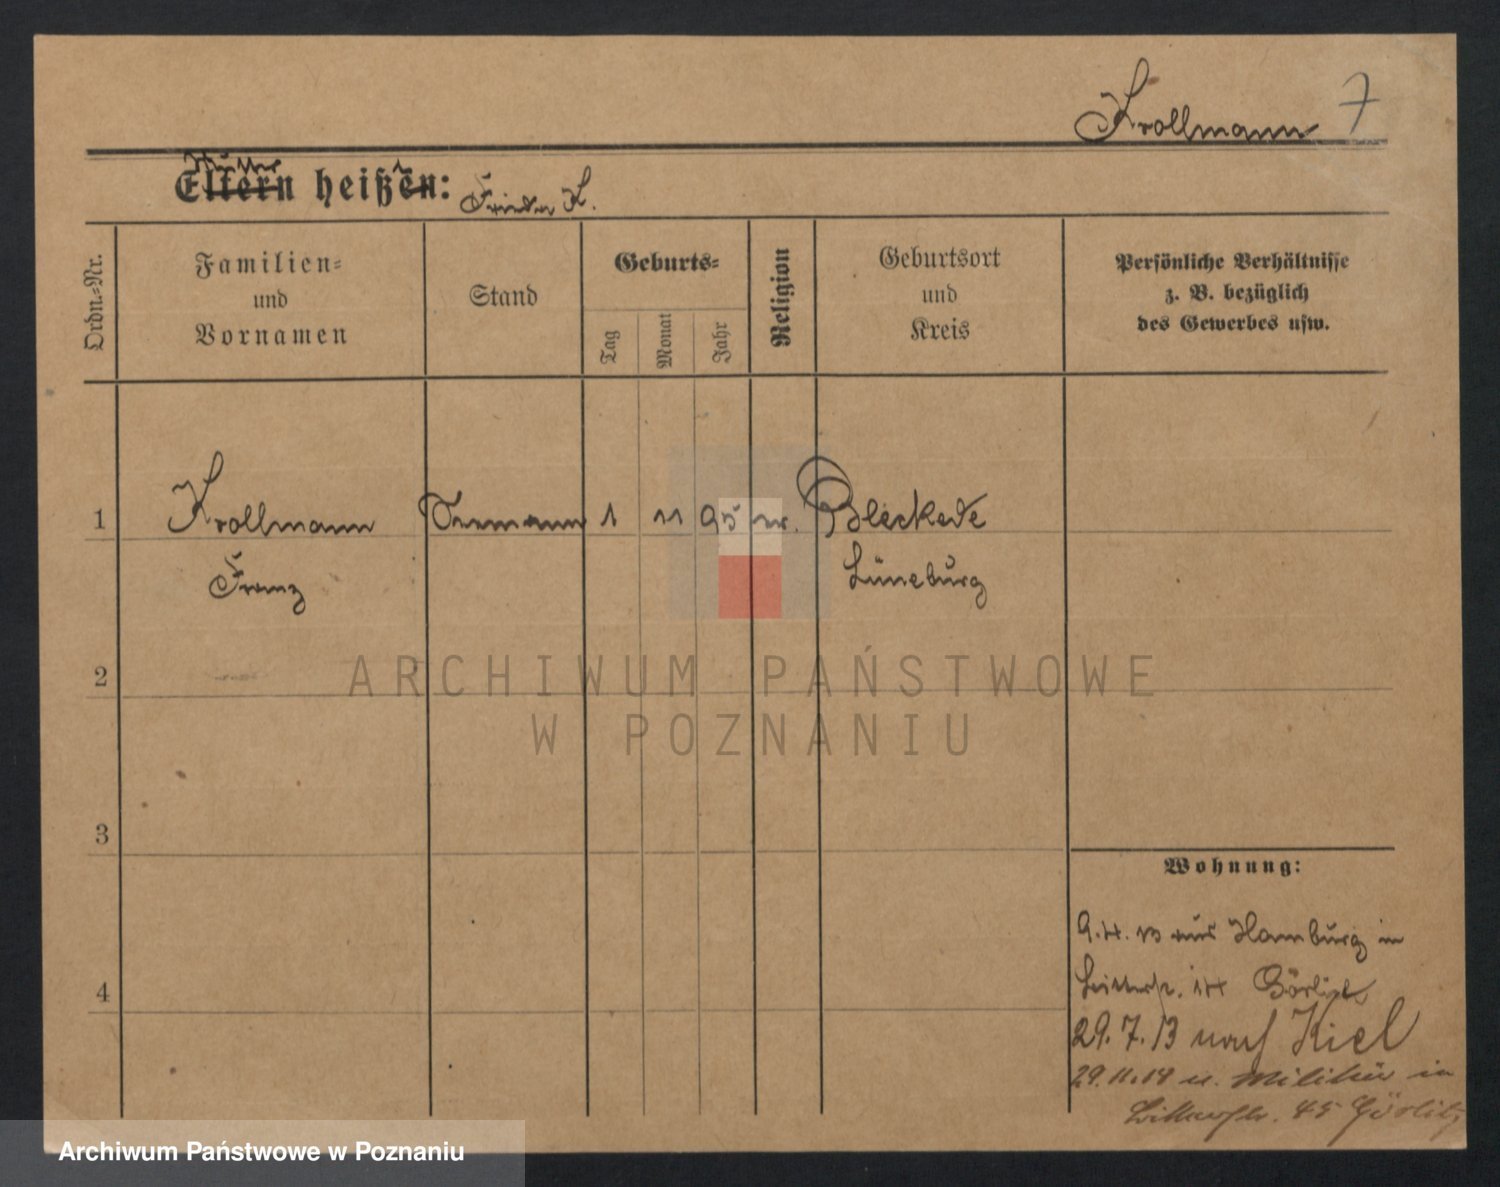 Krollmann 7
Mutter
Eltern heißen: Frieda K.
Ordn.-Nr.
Familien-
und
Vornamen
Stand
Geburts-
Tag
Monat
Jahr
Religion
Geburtsort
und
Kreis
Persönliche Verhältnisse
z. B. bezüglich
des Gewerbes usw.
1 Krollmann Seemann 1 11 95 ev. Bleckede
Franz Lüneburg
2
ARCHIWUM PAŃSTWOWE
W POZNANIU
3
Wohnung:
9.4.13 aus Hamburg in
14 Görlitz
4
29.7.13 nach Kiel
29.11.19 v. Militär in
45 Görlitz
Archiwum Państwowe w Poznaniu